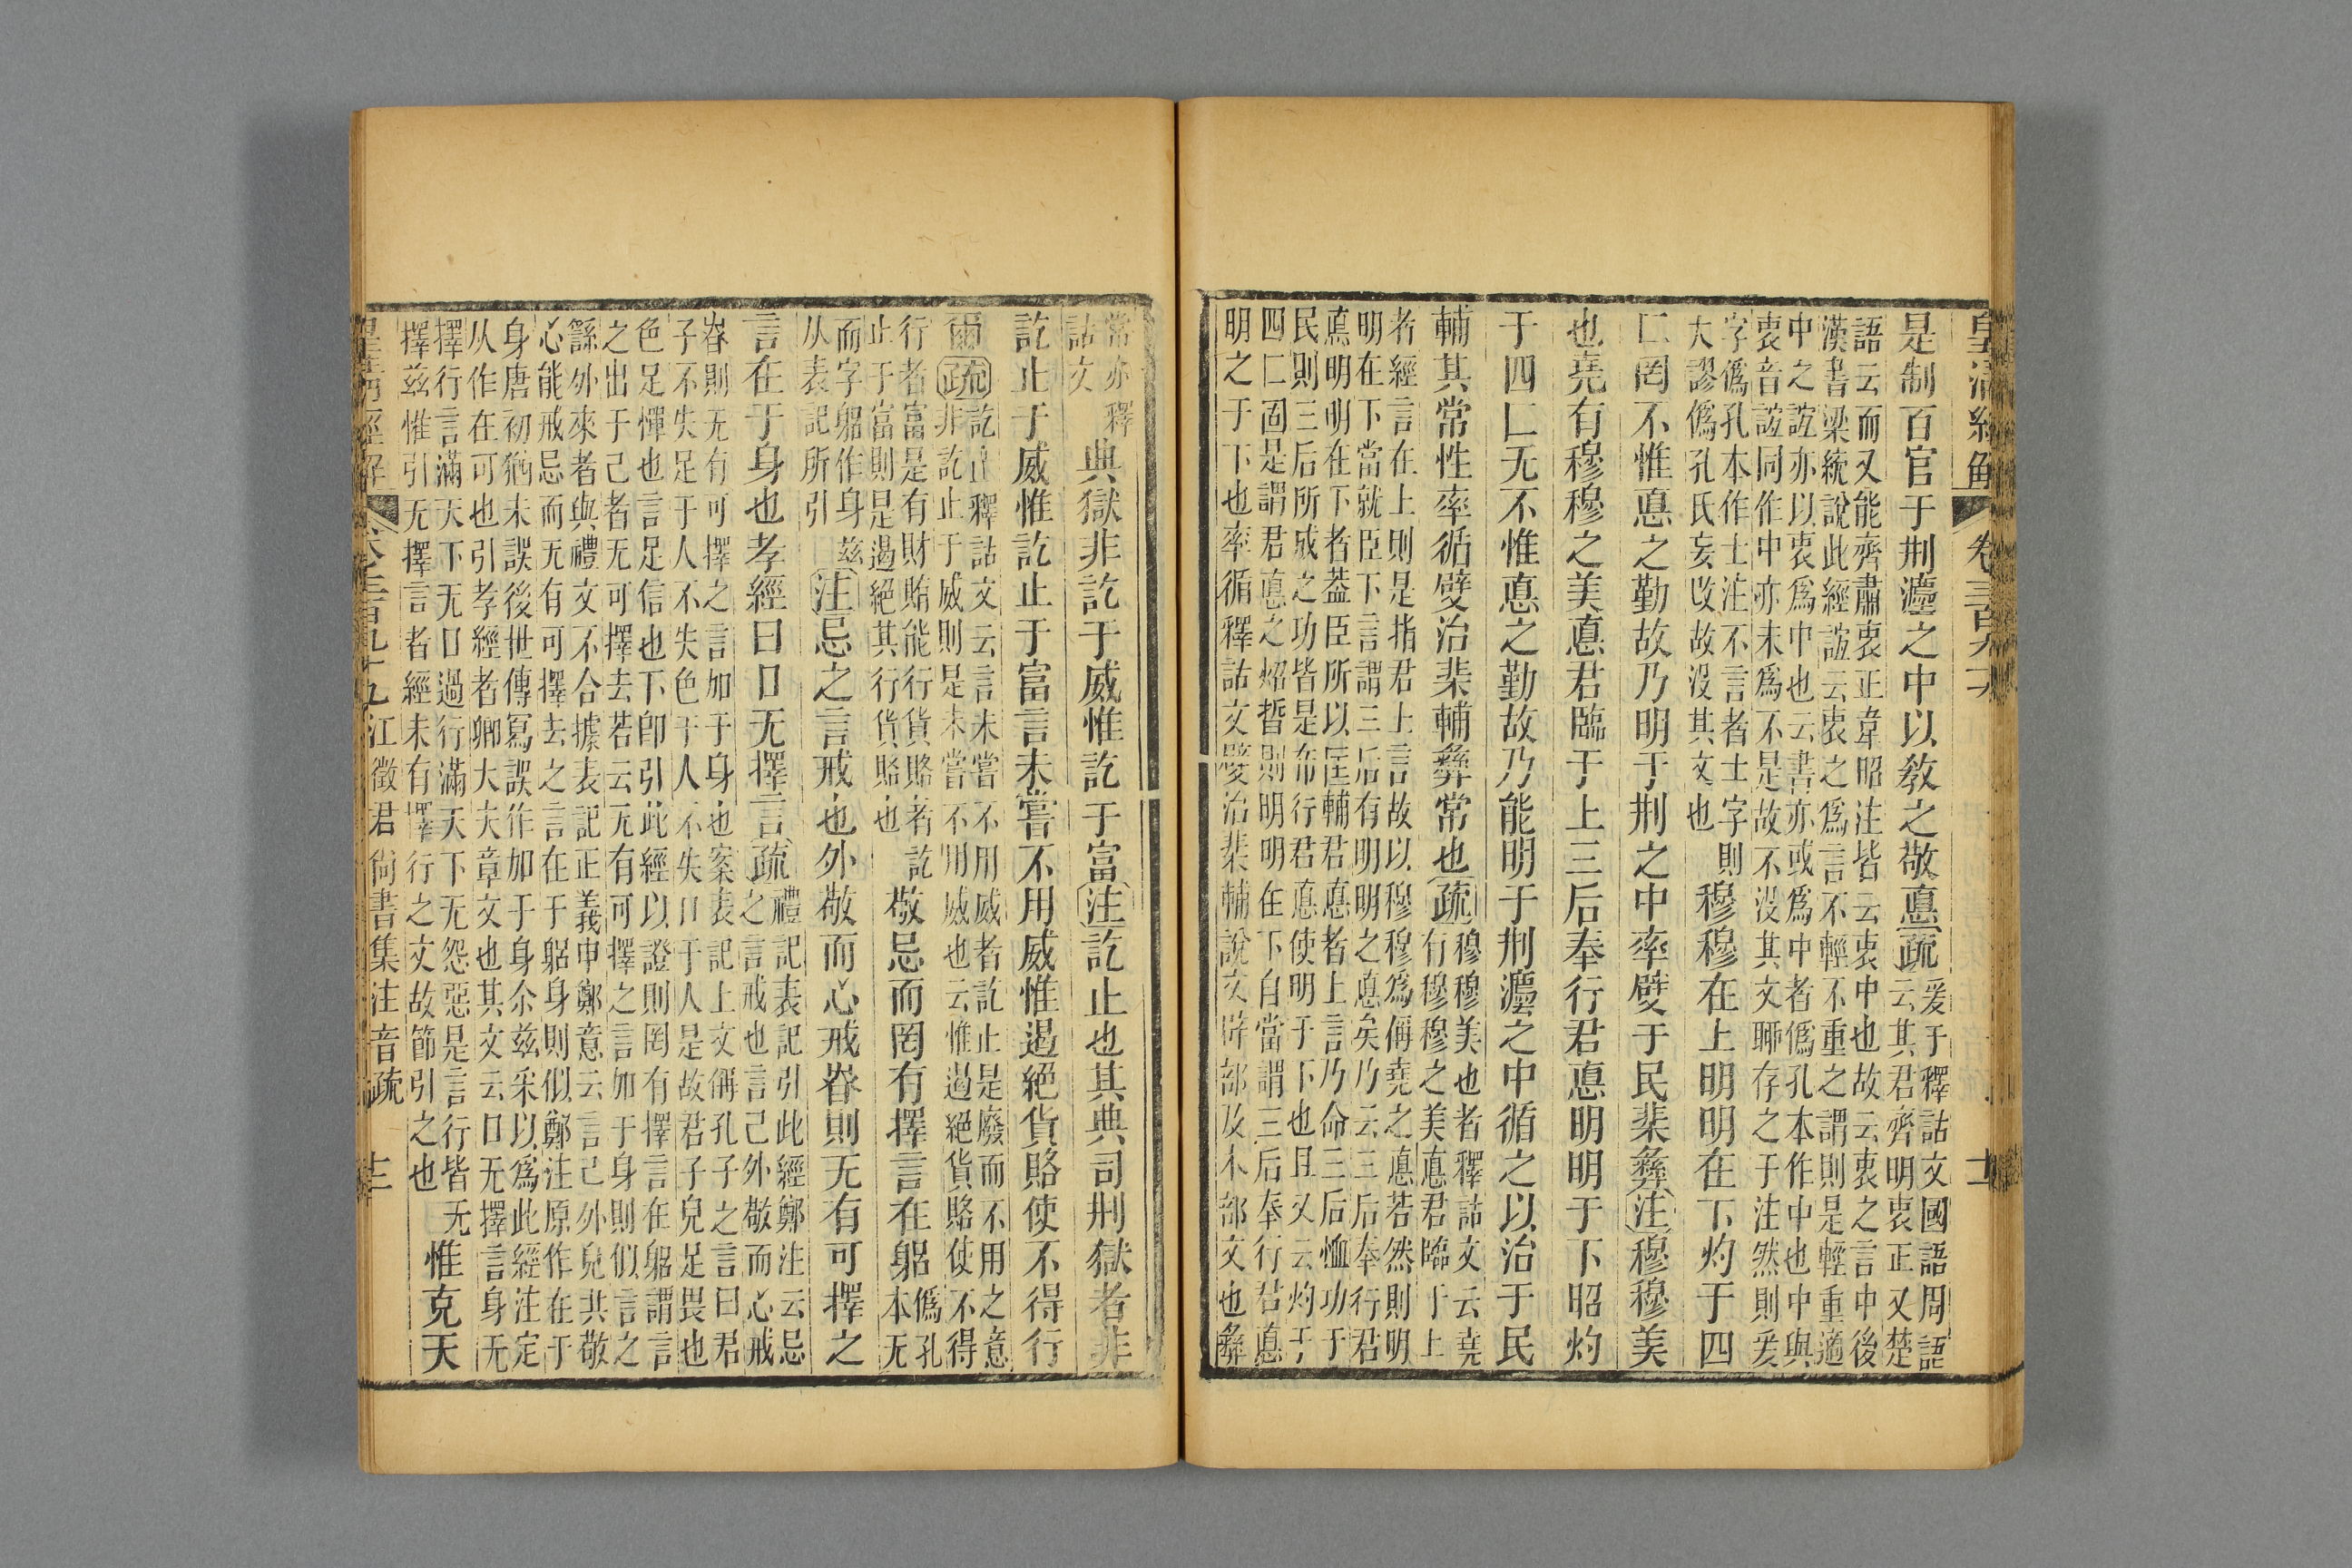 皇清經解 卷三百九十九
是制百官于㓝灋之中以敎之敬悳疏爰于釋詁文國語周語
云其君齊明衷正又楚
語云而又能齊肅衷正韋昭注皆云衷中也故云衷之言中後
漢書梁統說此經諠云衷之爲言不輕不重之謂則是輕重適
中之諠亦以衷爲中也云書亦或爲中者僞孔本作中也中與
衷音諠同作中亦未爲不是故不沒其文聊存之于注然則爰
字僞孔本作士注不言者士字則
大謬僞孔氏妄攺故沒其文也
穆穆在上明明在下灼于四
匚罔不惟悳之勤故乃明于㓝之中率嬖于民棐彝注穆穆美
也堯有穆穆之美悳君臨于上三后奉行君悳明明于下昭灼
于四匚无不惟悳之勤故乃能明于㓝灋之中循之以治于民
輔其常性率循嬖治棐輔彝常也疏穆穆美也者釋詁文云堯
有穆穆之美悳君臨于上
者經言在上則是指君上言故以穆穆爲偁堯之悳若然則明
明在下當就臣下言謂三后有明明之悳矣乃云三后奉行君
悳明明在下者葢臣所以匡輔君悳者上言乃命三后恤功于
民則三后所成之功皆是布行君悳使明于下也且又云灼于
四匚固是謂君悳之炤晢則明明在下自當謂三后奉行君悳
明之于下也率循釋詁文嬖治棐輔說文辟部及木部文也彝
常亦釋
詁文
典獄非訖于威惟訖于富注訖止也其典司㓝獄者非
訖止于威惟訖止于富言未嘗不用威惟遏絕貨賂使不得行
爾疏訖止釋詁文云言未嘗不用威者訖止是廢而不用之意
非訖止于威則是未嘗不用威也云惟遏絕貨賂使不得
行者富是有財賄能行貨賂者訖
止于富則是遏絕其行貨賂也
敬忌而罔有擇言在躳僞孔
本无
而字躳作身茲
从表記所引
注忌之言戒也外敬而心戒昚則无有可擇之
言在于身也孝經曰口无擇言疏禮記表記引此經鄭注云忌
之言戒也言己外敬而心戒
昚則无有可擇之言加于身也案表記上文偁孔子之言曰君
子不失足于人不失色于人不失口于人是故君子皃足畏也
色足憚也言足信也下卽引此經以證則罔有擇言在躳謂言
之出于己者无可擇去若云无有可擇之言加于身則似言之
繇外來者與禮文不合據表記正義申鄭意云言己外皃共敬
心能戒忌而无有可擇去之言在于躳身則似鄭注原作在于
身唐初猶未誤後世傳寫誤作加于身尒茲采以爲此經注定
从作在可也引孝經者卿大夫章文也其文云口无擇言身无
擇行言滿天下无口過行滿天下无怨惡是言行皆无
擇茲惟引无擇言者經未有擇行之文故節引之也
惟克天
皇清經解 卷三百九十九 江徵君尙書集注音疏 十三